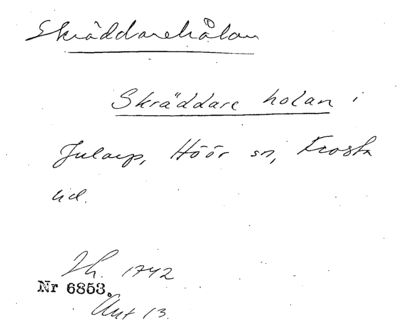 Skräddarehålan
Skräddare holan i
Jularp, Höör sn, Frosta
hd.
Lh. 1742
Nr 6853.
Ant 13.